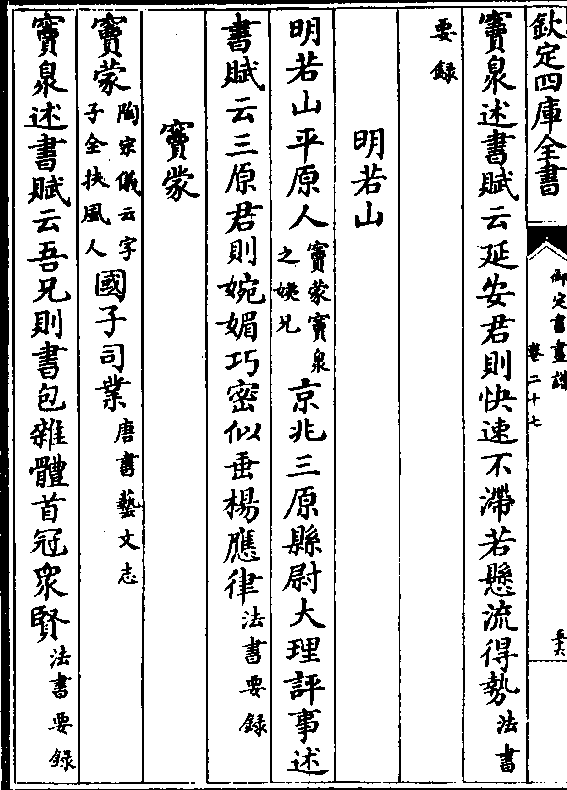 欽定四庫全書
御定書畫譜
卷二十七
竇泉述書賦云延安君則快速不滯若懸流得勢法書
要録
明若山
明若山平原人竇蒙竇泉之姨兄京兆三原縣尉大理評事述
書賦云三原君則婉媚巧密似垂楊應律法書要録
竇蒙
竇蒙陶宗儀云字子全扶風人國子司業唐書藝文志
竇泉述書賦云吾兄則書包雜體首冠衆賢法書要録